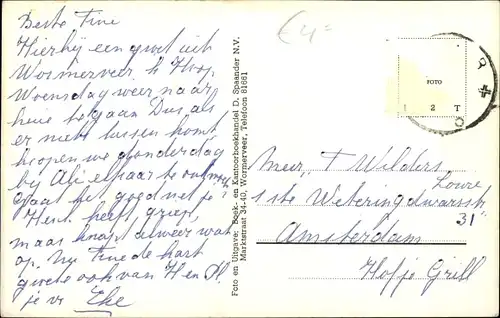 Beste Tine
Hierbij een groet uit
Wormerveer. Ik Hoop
Woensdag weer naar
huis te gaan Dus als
er niets tussen komt
hopen we donderdag
bij te
Gaat het goed met je
Henk heeft griep,
maar knapt alweer wat
op. Nu Tine de hart
groete ook van Hen
je vr
Foto en Uitgave: Boek- en Kantoorboekhandel D. Spaander N.V.
Marktstraat 34-40, Wormerveer, Telefoon 81661
€ 4=
FOTO
1 2 T O
Meur, T Wilders
1ste Weteringdwarsstr
31"
Amsterdam
Hofje Grill